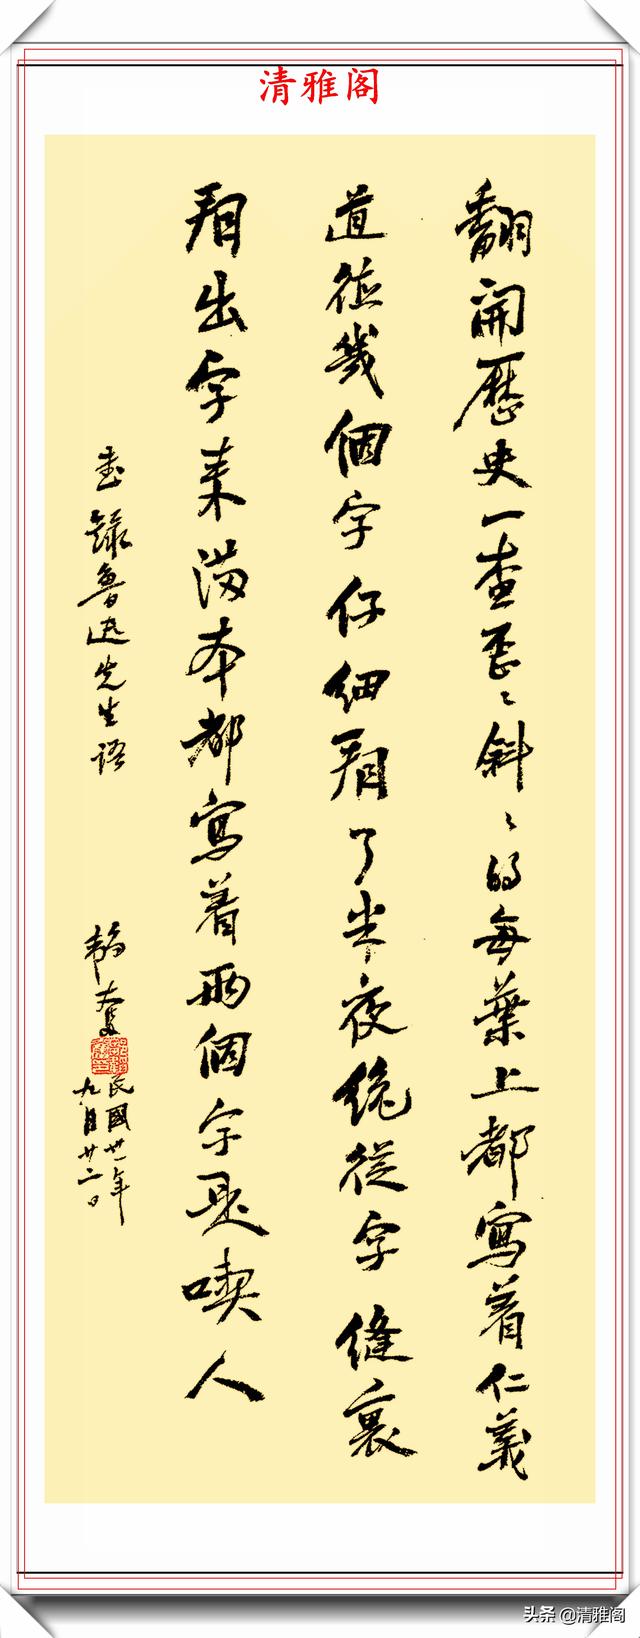 清雅阁
翻開歷史一查歪〻斜〻的每葉上都寫着仁義
道德幾個字仔細看了半夜纔從字縫裏
看出字來滿本都寫着兩個字是喫人
書錄魯迅先生語
韜奮
民國卅一年
九月廿二日
头条 @清雅阁